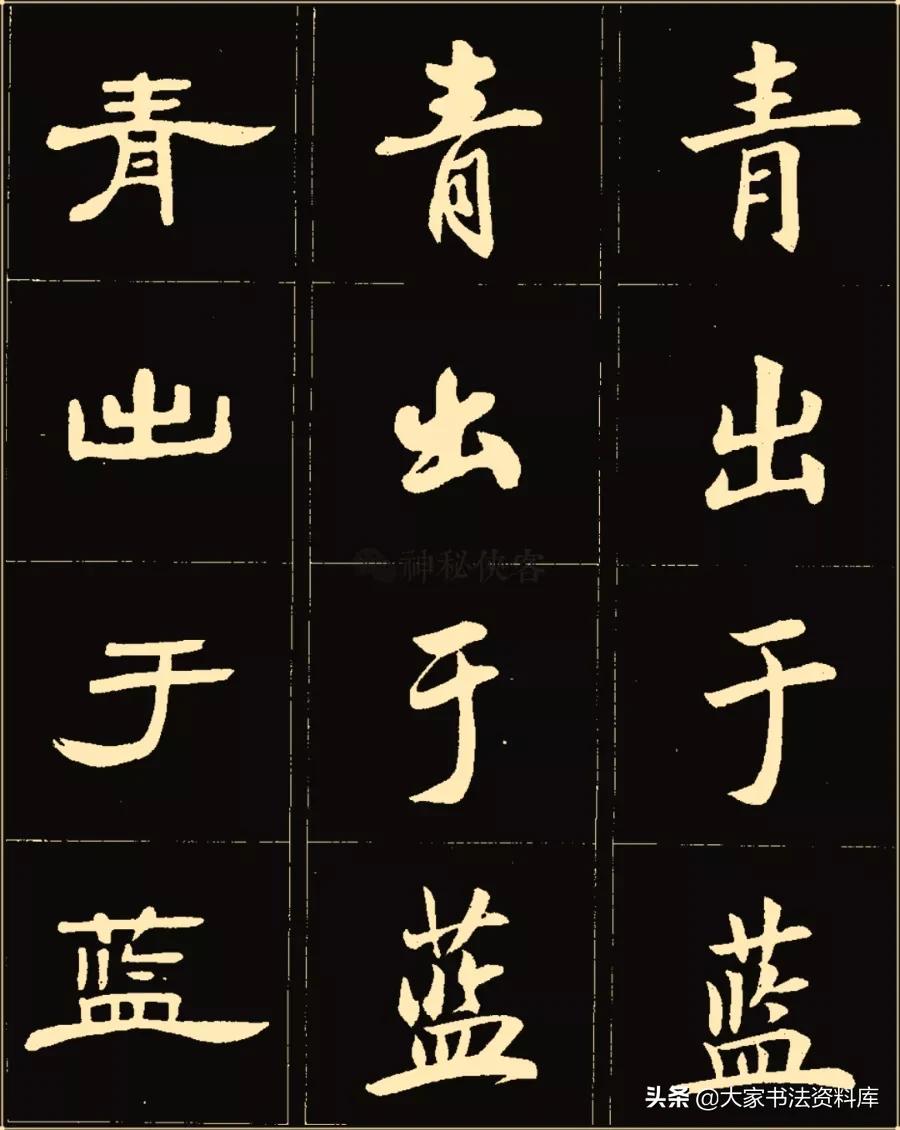 青 青 青
出 出 出
神秘侠客
于 于 于
蓝 蓝 蓝
头条 @大家书法资料库